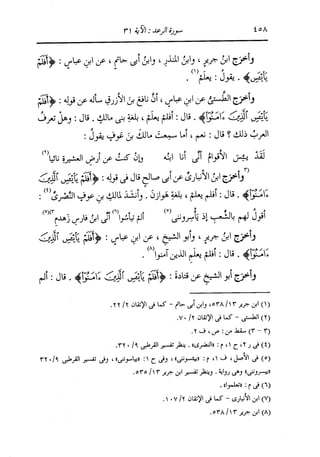 ٤٥٨ سورة الرعد : الآية ٣١
وأخرج ابنُ جريرٍ ، وابنُ المنذرِ ، وابنُ أبى حاتمٍ ، عن ابنِ عباسٍ : ﴿أَفَلَمْ
يَاْيْـَٔسِ﴾ . يقولُ : يعلَمُ(١) .
وأخرج الطستىُّ عن ابنِ عباسٍ ، أنَّ نافعَ بنَ الأزرقِ سأله عن قولِه : ﴿أَفَلَمْ
يَاْيْـَٔسِ الَّذِينَ ءَامَنُوٓا﴾ . قال : أفلم يعلَمْ ، بلغةِ بنى مالكٍ . قال : وهل تعرفُ
العربُ ذلك ؟ قال : نعم ، أما سمِعتَ مالكَ بنَ عوفٍ يقولُ :
لقَدْ يئِس الأقوامُ أنِّى أنا ابنُه وإن كنتُ عن أرضِ العشيرةِ نائيا(٢)
(٣)وأخرج ابنُ الأنبارىِّ عن أبى صالحٍ قال فى قولِه : ﴿أَفَلَمْ يَاْيْـَٔسِ الَّذِينَ
ءَامَنُوٓا﴾ . قال : أفلم يعلمْ ، بلغةِ هَوازنَ . وأنشَد لمالكِ بنِ عوفٍ النَّصْرىِّ(٤) :
أقولُ لهم بالشِّعبِ إذ يأسِروننى(٥) ألم تيأسُوا(٦) أنِّى ابنُ فارسِ زَهدمِ(٣)(٧)
وأخرج ابنُ جريرٍ ، وأبو الشيخِ ، عن ابنِ عباسٍ : ﴿أَفَلَمْ يَاْيْـَٔسِ الَّذِينَ
ءَامَنُوٓا﴾ . قال : أفلم يعلَمِ الذين آمنوا(٨) .
وأخرج أبو الشيخِ عن قتادةَ : ﴿أَفَلَمْ يَاْيْـَٔسِ الَّذِينَ ءَامَنُوٓا﴾ . قال : ألم
(١) ابن جرير ١٣/ ٥٣٨، وابن أبى حاتم - كما فى الإتقان ٢/ ٢٢.
(٢) الطستى - كما فى الإتقان ٢/ ٧٠.
(٣ - ٣) سقط من : ص، ف ٢.
(٤) فى ر ٢، ح ١، م : «النضرى». ينظر تفسير القرطبى ٩/ ٣٢٠.
(٥) فى الأصل، ف ١، م : «ييئسوننى»، وفى ح ١: «يياسوننى»، وفى تفسير القرطبى ٩/ ٣٢٠
«ييسروننى» وهى رواية. وينظر تفسير ابن جرير ١٣/ ٥٣٥.
(٦) فى م : «تعلموا».
(٧) ابن الأنبارى - كما فى الإتقان ٢/ ١٠٧.
(٨) ابن جرير ١٣/ ٥٣٨.